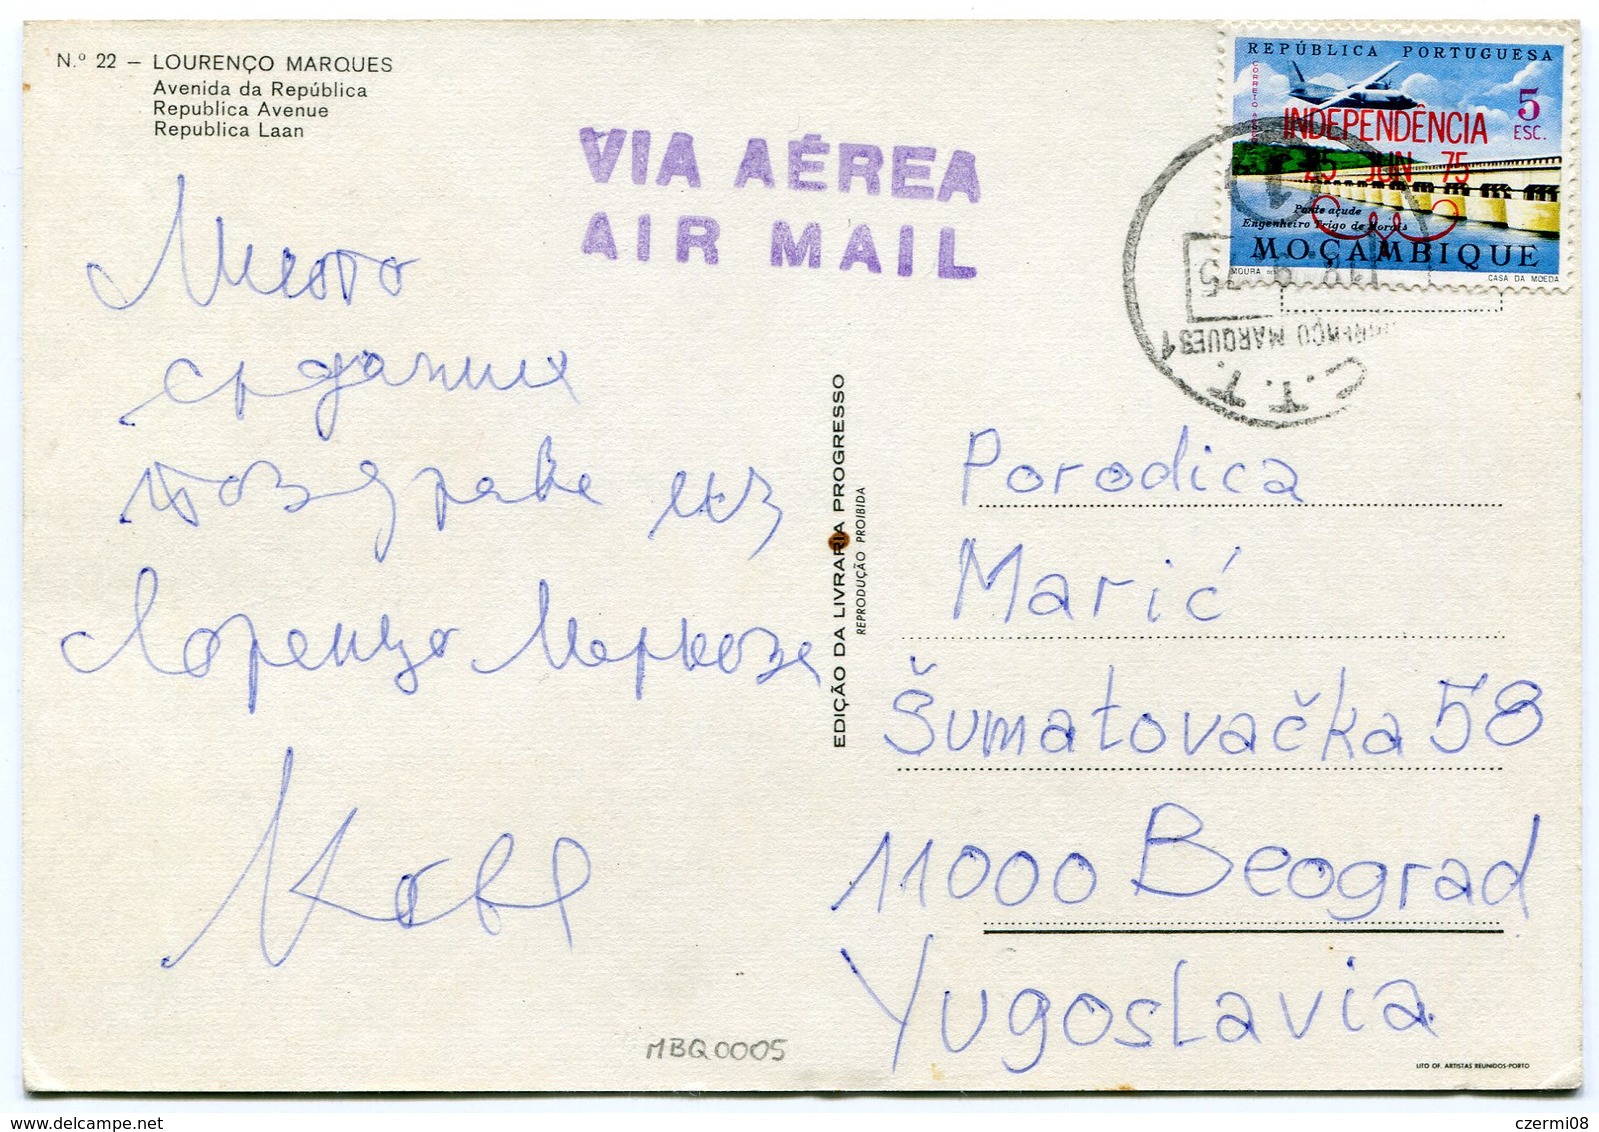 N.º 22 — LOURENÇO MARQUES
Avenida da República
Republica Avenue
Republica Laan
VIA AÉREA
AIR MAIL
REPÚBLICA PORTUGUESA
CORREIO AÉREO
5
ESC.
INDEPENDÊNCIA
25 JUN 75
Ponte açude
Engenheiro Trigo de Morais
MOÇAMBIQUE
MOURA
CASA DA MOEDA
LOURENÇO MARQUES 1
C.T.T.
Много
срдачних
поздрава из
Лоренцо Маркеза
EDIÇÃO DA LIVRARIA PROGRESSO
REPRODUÇÃO PROIBIDA
Porodica
Marić
Šumatovačka 58
11000 Beograd
Yugoslavia
MBQ0005
LITO OF. ARTISTAS REUNIDOS-PORTO
czermi08